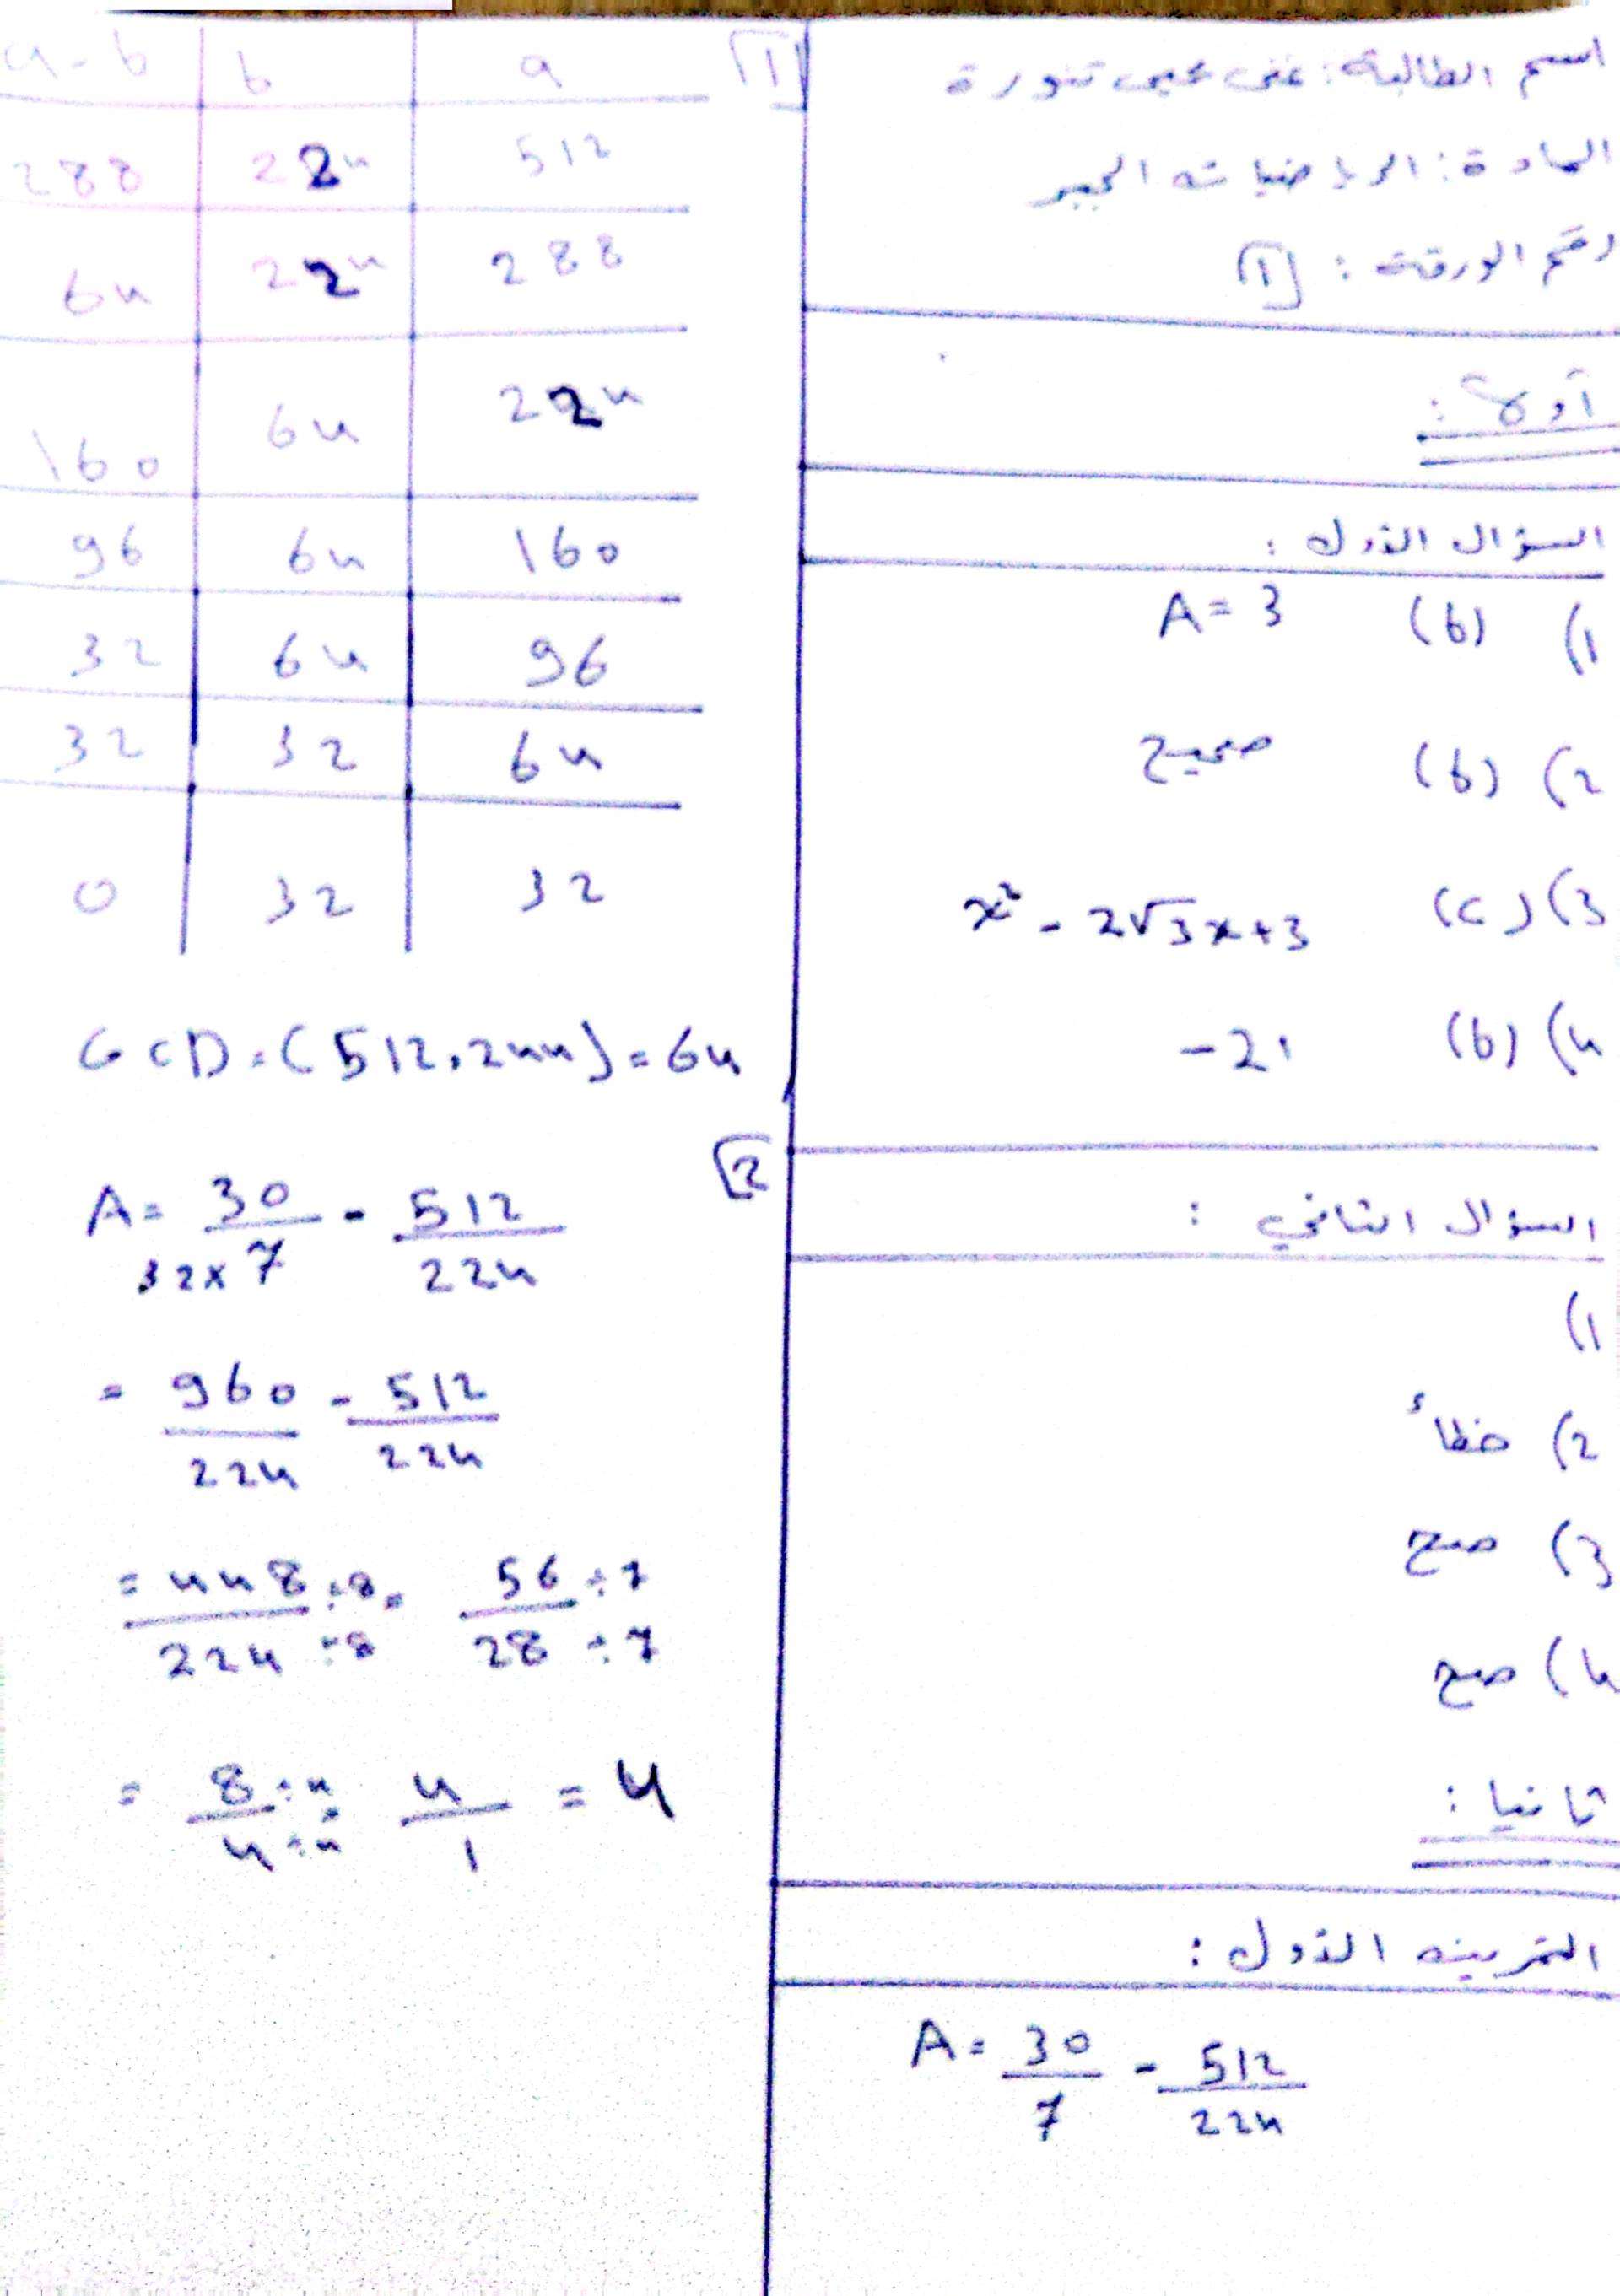 اسم الطالبة: غنى يحيى تنورة
المادة: الرياضيات الجبر
رقم الورقة: 1
أولاً:
السؤال الأول:
1) (b) A = 3
2) (b) صحيح
3) (c) x² - 2√3x + 3
4) (b) -21
السؤال الثاني:
1)
2) خطأ
3) صح
4) صح
ثانيا:
التمرين الأول:
A = 30/7 - 512/224
1
a b a-b
512 224 288
288 224 64
224 64 160
160 64 96
96 64 32
64 32 32
32 32 0
GCD = (512, 244) = 64
2
A = 30/7 - 512/224
32×
= 960/224 - 512/224
= 448÷8/224÷8 = 56÷7/28÷7
= 8÷4/4÷4 = 4/1 = 4